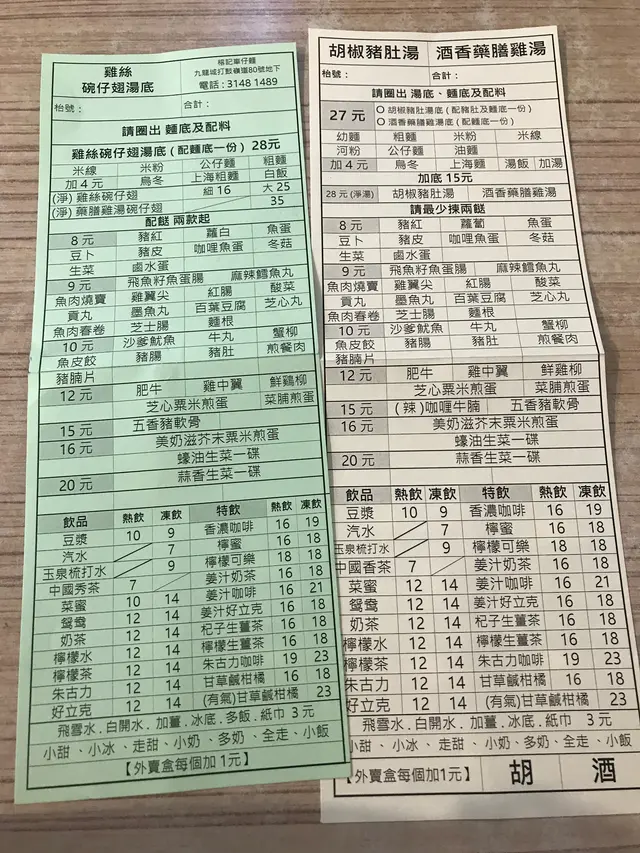 雞絲
碗仔翅湯底
榕記車仔麵
九龍城打鼓嶺道80號地下
電話：3148 1489
枱號： 合計：
請圈出 麵底及配料
雞絲碗仔翅湯底 (配麵底一份) 28元
米線 米粉 公仔麵 粗麵
加4元 烏冬 上海粗麵 白飯
(淨) 雞絲碗仔翅 細16 大25
(淨) 藥膳雞湯碗仔翅 35
配餸 兩款起
8元 豬紅 蘿白 魚蛋
豆卜 豬皮 咖哩魚蛋 冬菇
生菜 鹵水蛋
9元 飛魚籽魚蛋腸 麻辣鱈魚丸
魚肉燒賣 雞翼尖 紅腸 酸菜
貢丸 墨魚丸 百葉豆腐 芝心丸
魚肉春卷 芝士腸 麵根
10元 沙爹魷魚 牛丸 蟹柳
魚皮餃 豬腸 豬肚 煎餐肉
豬腩片
12元 肥牛 雞中翼 鮮鷄柳
芝心粟米煎蛋 菜脯煎蛋
15元 五香豬軟骨
16元 美奶滋芥末粟米煎蛋
蠔油生菜一碟
20元 蒜香生菜一碟
飲品 熱飲 凍飲 特飲 熱飲 凍飲
豆漿 10 9 香濃咖啡 16 19
汽水 7 檸蜜 16 18
玉泉梳打水 9 檸檬可樂 18 18
中國秀茶 7 姜汁奶茶 16 18
菜蜜 10 14 姜汁咖啡 16 21
鴛鴦 12 14 姜汁好立克 16 18
奶茶 12 14 杞子生薑茶 16 18
檸檬水 12 14 檸檬生薑茶 16 18
檸檬茶 12 14 朱古力咖啡 19 23
朱古力 12 14 甘草鹹柑橘 16 18
好立克 12 14 (有氣)甘草鹹柑橘 23
飛雪水 . 白開水 . 加薑 . 冰底 . 多飯 . 紙巾 3元
小甜 、小冰 、走甜、小奶 、多奶 、全走、小飯
【外賣盒每個加1元】
胡椒豬肚湯 酒香藥膳雞湯
枱號： 合計：
請圈出 湯底、麵底及配料
27元 ○ 胡椒豬肚湯底 (配豬肚及麵底一份)
○ 酒香藥膳雞湯底 (配麵底一份)
幼麵 粗麵 米粉 米線
河粉 公仔麵 油麵
加4元 烏冬 上海粗麵 湯飯 加湯
加底 15元
28元 (淨湯) 胡椒豬肚湯 酒香藥膳雞湯
請最少揀兩餸
8元 豬紅 蘿蔔 魚蛋
豆卜 豬皮 咖喱魚蛋 冬菇
生菜 鹵水蛋
9元 飛魚籽魚蛋腸 麻辣鱈魚丸
魚肉燒賣 雞翼尖 紅腸 酸菜
貢丸 墨魚丸 百葉豆腐 芝心丸
魚肉春卷 芝士腸 麵根
10元 沙爹魷魚 牛丸 蟹柳
魚皮餃 豬腸 豬肚 煎餐肉
豬腩片
12元 肥牛 雞中翼 鮮雞柳
芝心粟米煎蛋 菜脯煎蛋
15元 (辣)咖喱牛腩 五香豬軟骨
16元 美奶滋芥末粟米煎蛋
蠔油生菜一碟
20元 蒜香生菜一碟
飲品 熱飲 凍飲 特飲 熱飲 凍飲
豆漿 10 9 香濃咖啡 16 19
汽水 7 檸蜜 16 18
玉泉梳打水 9 檸檬可樂 18 18
中國香茶 7 姜汁奶茶 16 18
菜蜜 12 14 姜汁咖啡 16 21
鴛鴦 12 14 姜汁好立克 16 18
奶茶 12 14 杞子生薑茶 16 18
檸檬水 12 14 檸檬生薑茶 16 18
檸檬茶 12 14 朱古力咖啡 19 23
朱古力 12 14 甘草鹹柑橘 16 18
好立克 12 14 (有氣)甘草鹹柑橘 23
飛雪水 . 白開水 . 加薑 . 冰底 . 紙巾 3元
小甜 、小冰、走甜、小奶、多奶、全走、小飯
【外賣盒每個加1元】 胡 酒